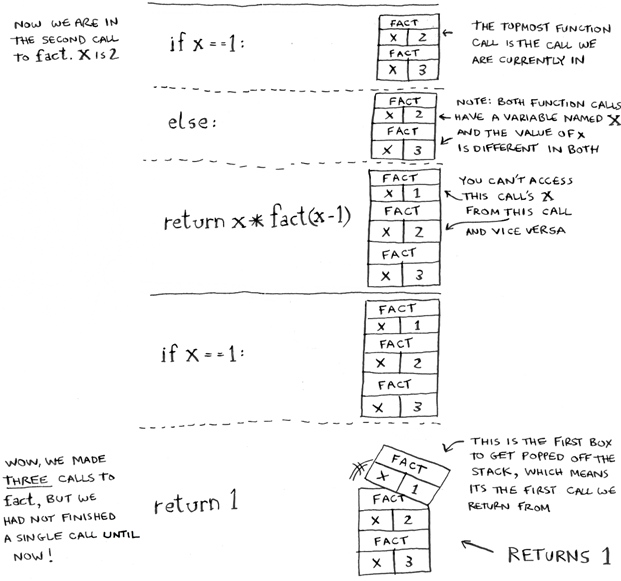 NOW WE ARE IN
THE SECOND CALL
TO fact. X IS 2
if x==1:
FACT
X 2
FACT
X 3
THE TOPMOST FUNCTION
CALL IS THE CALL WE
ARE CURRENTLY IN
else:
FACT
X 2
FACT
X 3
NOTE: BOTH FUNCTION CALLS
HAVE A VARIABLE NAMED X
AND THE VALUE OF X
IS DIFFERENT IN BOTH
return x * fact(x-1)
FACT
X 1
FACT
X 2
FACT
X 3
YOU CAN'T ACCESS
THIS CALL'S X
FROM THIS CALL
AND VICE VERSA
if x==1:
FACT
X 1
FACT
X 2
FACT
X 3
WOW, WE MADE
THREE CALLS TO
fact, BUT WE
HAD NOT FINISHED
A SINGLE CALL UNTIL
NOW!
return 1
FACT
X 1
FACT
X 2
FACT
X 3
THIS IS THE FIRST BOX
TO GET POPPED OFF THE
STACK, WHICH MEANS
ITS THE FIRST CALL WE
RETURN FROM
RETURNS 1